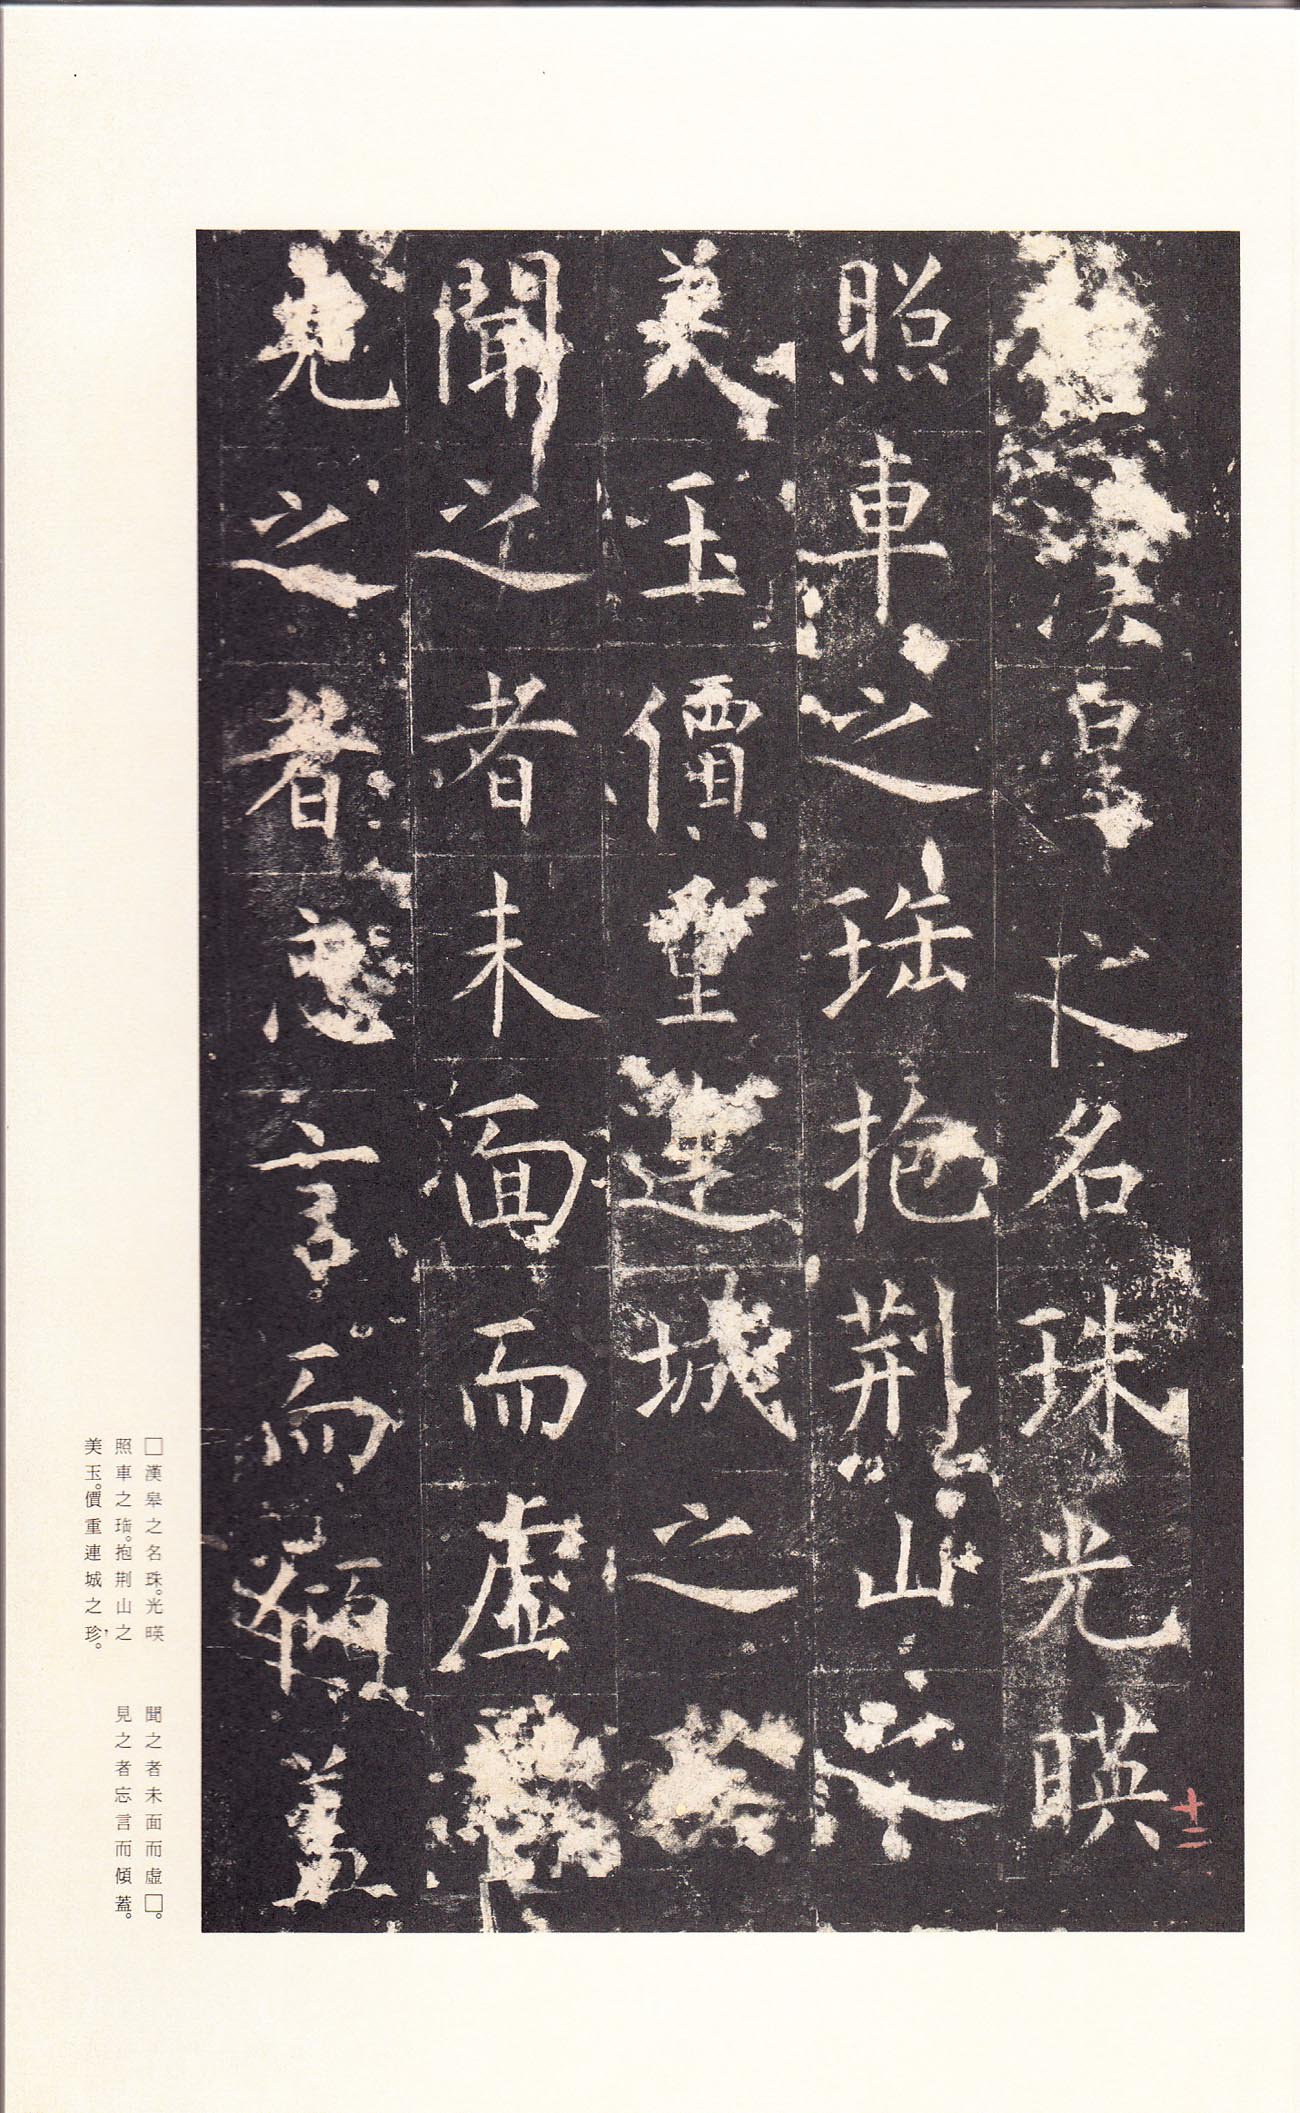 漢皐之名珠光暎
照車之瑎抱荆山之
美玉價重連城之
聞之者未面而虛
見之者忘言而傾蓋
十二
□漢皋之名珠。光暎
照車之瑎。抱荆山之
美玉。價重連城之珍。
聞之者未面而虛□。
見之者忘言而傾蓋。